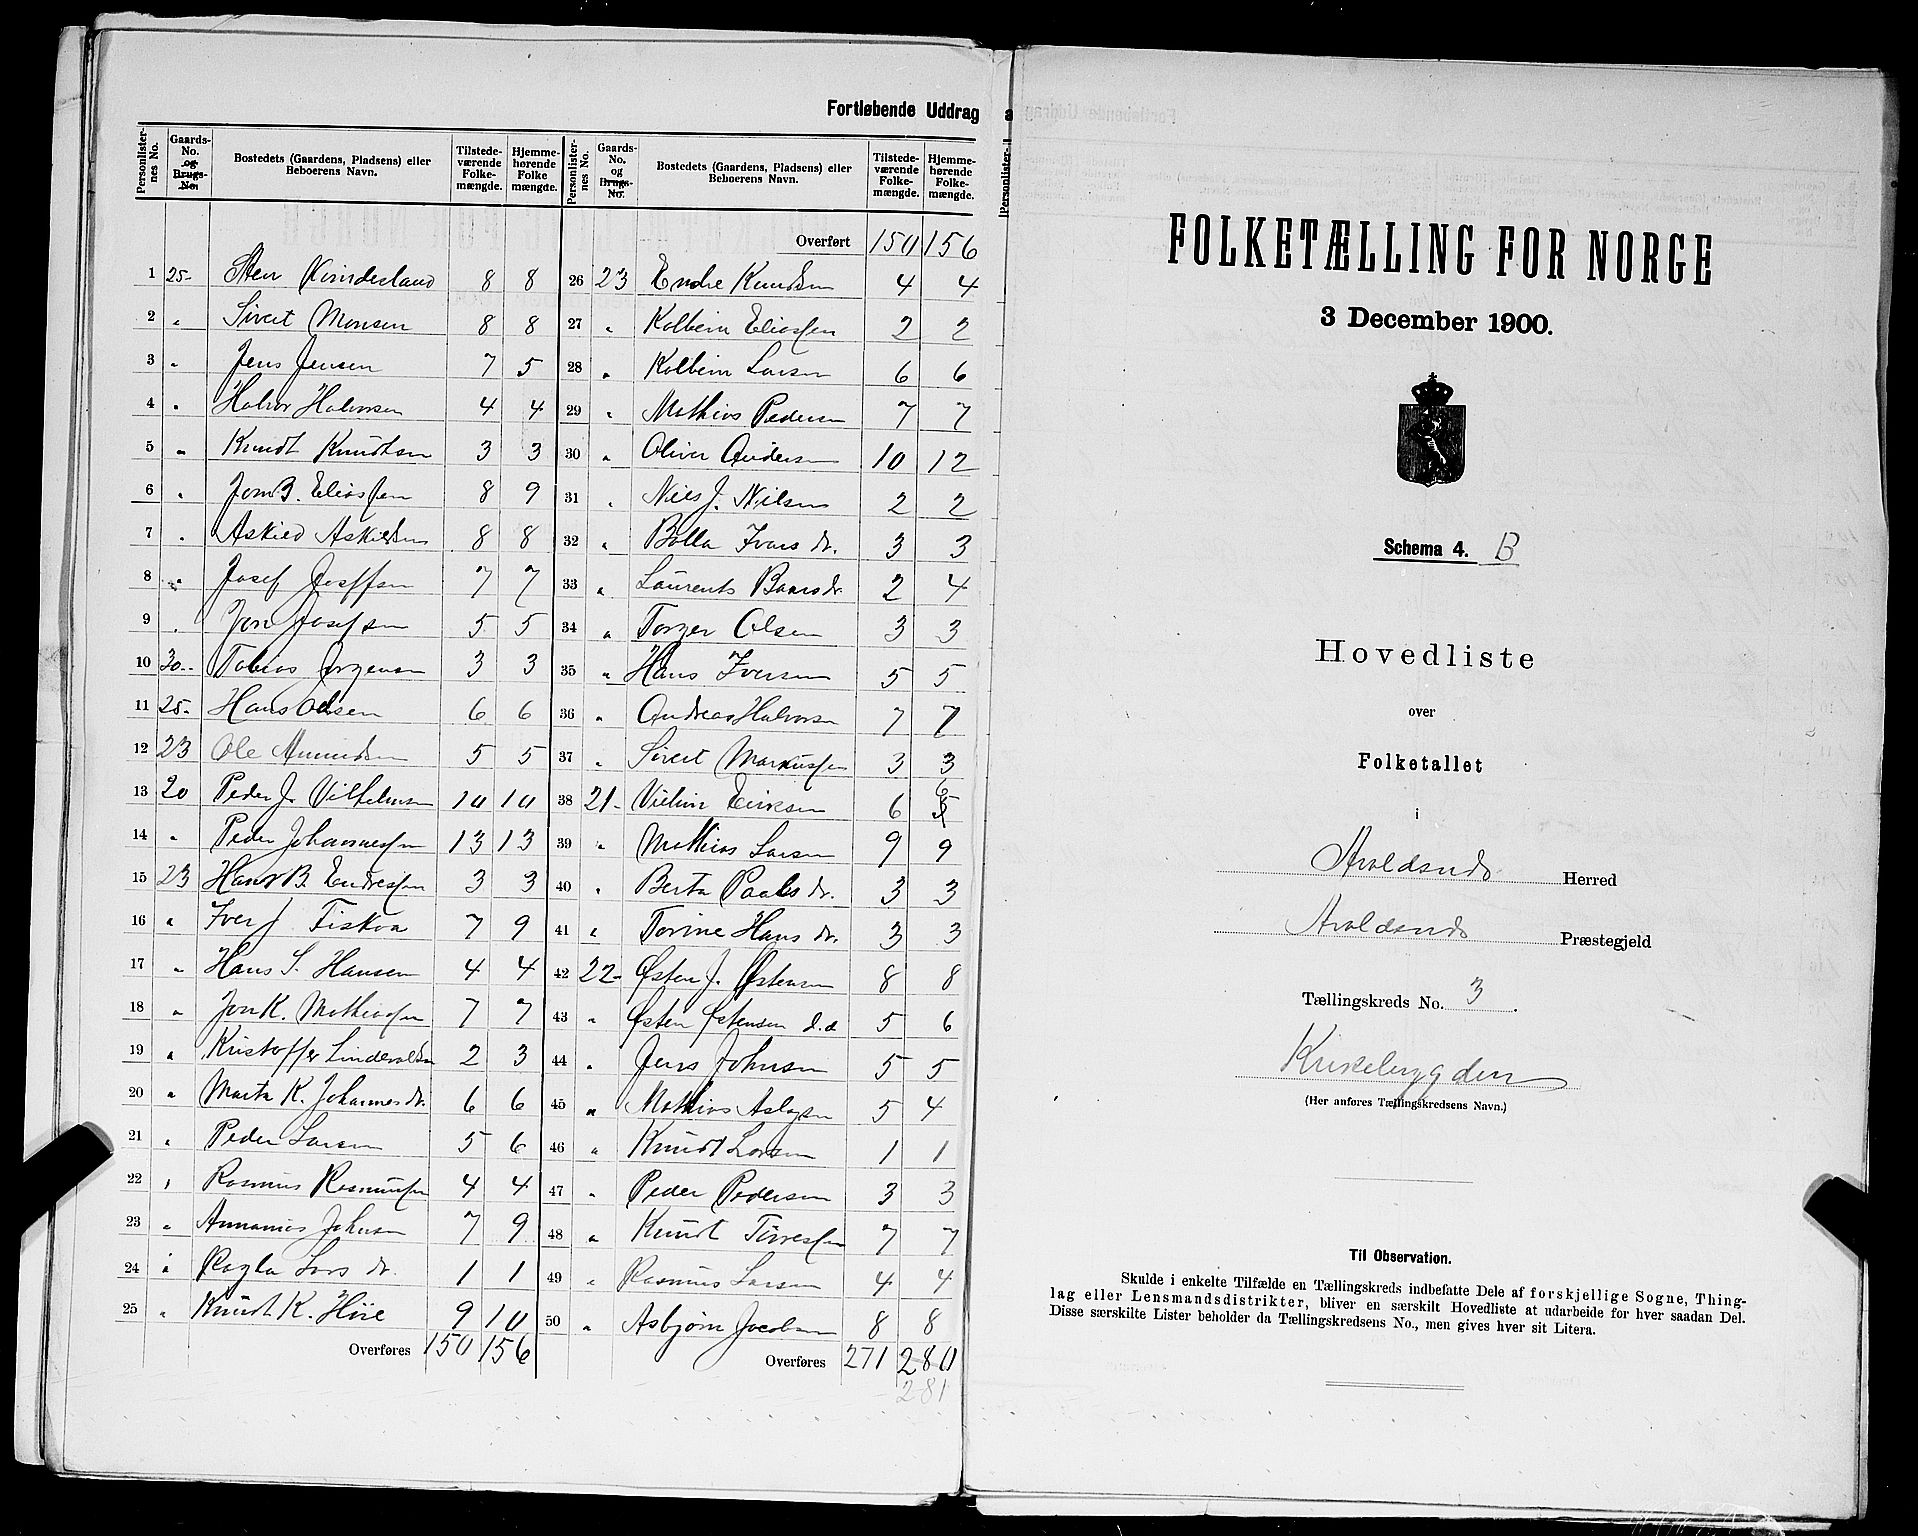 Fortløbende Uddrag a
Personlisternes No. | Gaards-No. og Brugs-No. | Bostedets (Gaardens, Pladsens) eller Beboerens Navn. | Tilstedeværende Folkemængde. | Hjemmehørende Folkemængde.
1 25- Sten Kinderland 8 8
2 " Sivert Monsen 8 8
3 " Jens Jensen 7 5
4 " Halvor Halvorsen 4 4
5 " Knudt Knudtsen 3 3
6 " Jon B. Eliassen 8 9
7 " Askild Askildsen 8 8
8 " Josef Joseffsen 7 7
9 " Jon Josefsen 5 5
10 30- Tobias Jørgensen 3 3
11 25- Hans Olsen 6 6
12 23 Ole Amundsen 5 5
13 20 Peder J. Vilhelmsen 10 10
14 " Peder Johannessen 13 13
15 23 Hans B. Endresen 3 3
16 " Iver J. Fiskaa 7 9
17 " Hans S. Hansen 4 4
18 " Jon K. Mathiassen 7 7
19 " Kristoffer Lindevaldsen 2 3
20 " Marta K. Johannesdr. 6 6
21 " Peder Larsen 5 6
22 " Rasmus Rasmussen 4 4
23 " Annanias Johnsen 7 9
24 " Ragla Lars dr. 1 1
25 " Knudt K. Hüe 9 10
Overføres 150 156
Personlisternes No. | Gaards-No. og Brugs-No. | Bostedets (Gaardens, Pladsens) eller Beboerens Navn. | Tilstedeværende Folkemængde. | Hjemmehørende Folkemængde.
Overført 150 156
26 23 Endre Knudsen 4 4
27 " Kolbein Eliassen 2 2
28 " Kolbein Larsen 6 6
29 " Mathias Pedersen 7 7
30 " Oliver Andersen 10 12
31 " Niels J. Nilsen 2 2
32 " Bolla Ivars dr. 3 3
33 " Laurents Baarsdr. 2 4
34 " Torger Olsen 3 3
35 " Hans Iversen 5 5
36 " Andreas Halvorsen 7 7
37 " Sivert Markussen 3 3
38 21- Eriksen 6 6
39 " Mathias Larsen 9 9
40 " Berta Paals dr. 3 3
41 " Torine Hans dr. 3 3
42 22- Østen J. Østensen 8 8
43 " Østen Østensen d.e 5 6
44 " Jens Johnsen 5 5
45 " Mathias Aslagsen 5 4
46 " Knudt Larsen 1 1
47 " Peder Pedersen 3 3
48 " Knudt Tørressen 7 7
49 " Rasmus Larsen 4 4
50 " Asbjørn Jacobsen 8 8
Overføres 271 280
281
Personlister-
FOLKETÆLLING FOR NORGE
3 December 1900.
Schema 4. B
Hovedliste
over
Folketallet
i
Avaldsnds Herred
Avaldsnds Præstegjeld
Tællingskreds No. 3.
Kirkebygden
(Her anføres Tællingskredsens Navn.)
Til Observation.
Skulde i enkelte Tilfælde en Tællingskreds indbefatte Dele af forskjellige Sogne, Thing-
lag eller Lensmandsdistrikter, bliver en særskilt Hovedliste at udarbeide for hver saadan Del.
Disse særskilte Lister beholder da Tællingskredsens No., men gives hver sit Litera.